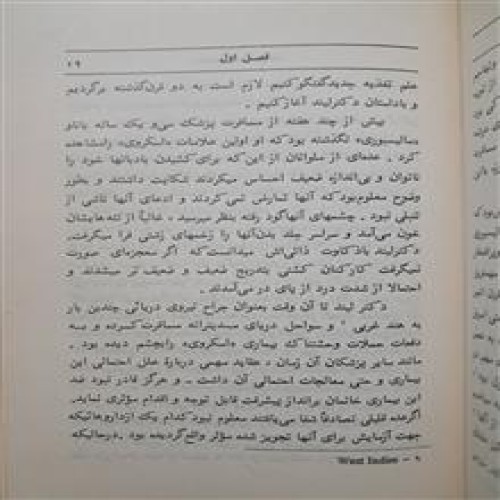 فصل اول ۱۹
علم تغذیه جدیدگفتگو کنیم لازم است به دو قرن‌گذشته برگردیم
و باداستان دکترلیند آغازکنیم .
بیش از چند هفته از مسافرت پزشک سی‌و یک ساله باناو
«سالیسبوری» نگذشته بود که او اولین علامات «اسکروی» رامشاهده
کرد . عده‌ای از ملوانان از این‌که برای‌کشیدن بادبانها خود را
ناتوان و بی‌اندازه ضعیف احساس میکردند شکایت داشتند و بطور
وضوح معلوم‌بود که آنها تمارض نمی‌کردند و ادعای آنها ناشی از
تنبلی نبود . چشمهای آنهاگود رفته بنظر میرسید ، غالباً از لثه‌هایشان
خون می‌آمد و سراسر جلد بدن‌آنها را زخمهای زشتی فرا میگرفت.
دکترلیند باذکاوت ذاتی‌اش میدانست‌که اگر معجزه‌ای صورت
نمیگرفت کارکنان کشتی بتدریج ضعیف و ضعیف‌تر میشدند و
احتمالا از شدت درد از پای در می‌آمدند .
دکتر لیند تا آن وقت بعنوان جراح نیروی دریائی چندین بار
به هند غربی ۱ و سواحل دریای مدیترانه مسافرت‌کرده و به
دفعات حملات وحشتناک بیماری «اسکروی» رابچشم دیده بود .
مانند سایر پزشکان آن زمان ، عقاید مبهمی دربارهٔ علل احتمالی این
بیماری و حتی معالجات احتمالی آن داشت . و هرگز قادر نبود ضد
این بیماری خانمان برانداز پیشرفت قابل توجه و اقدام مؤثری نماید.
اگرعده قلیلی تصادفاً شفا می‌یافتند معلوم نبودکدام یک ازداروهائیکه
جهت آزمایش برای آنها تجویز شده مؤثر واقع‌گردیده بود . درحالیکه
۱ – West Indies